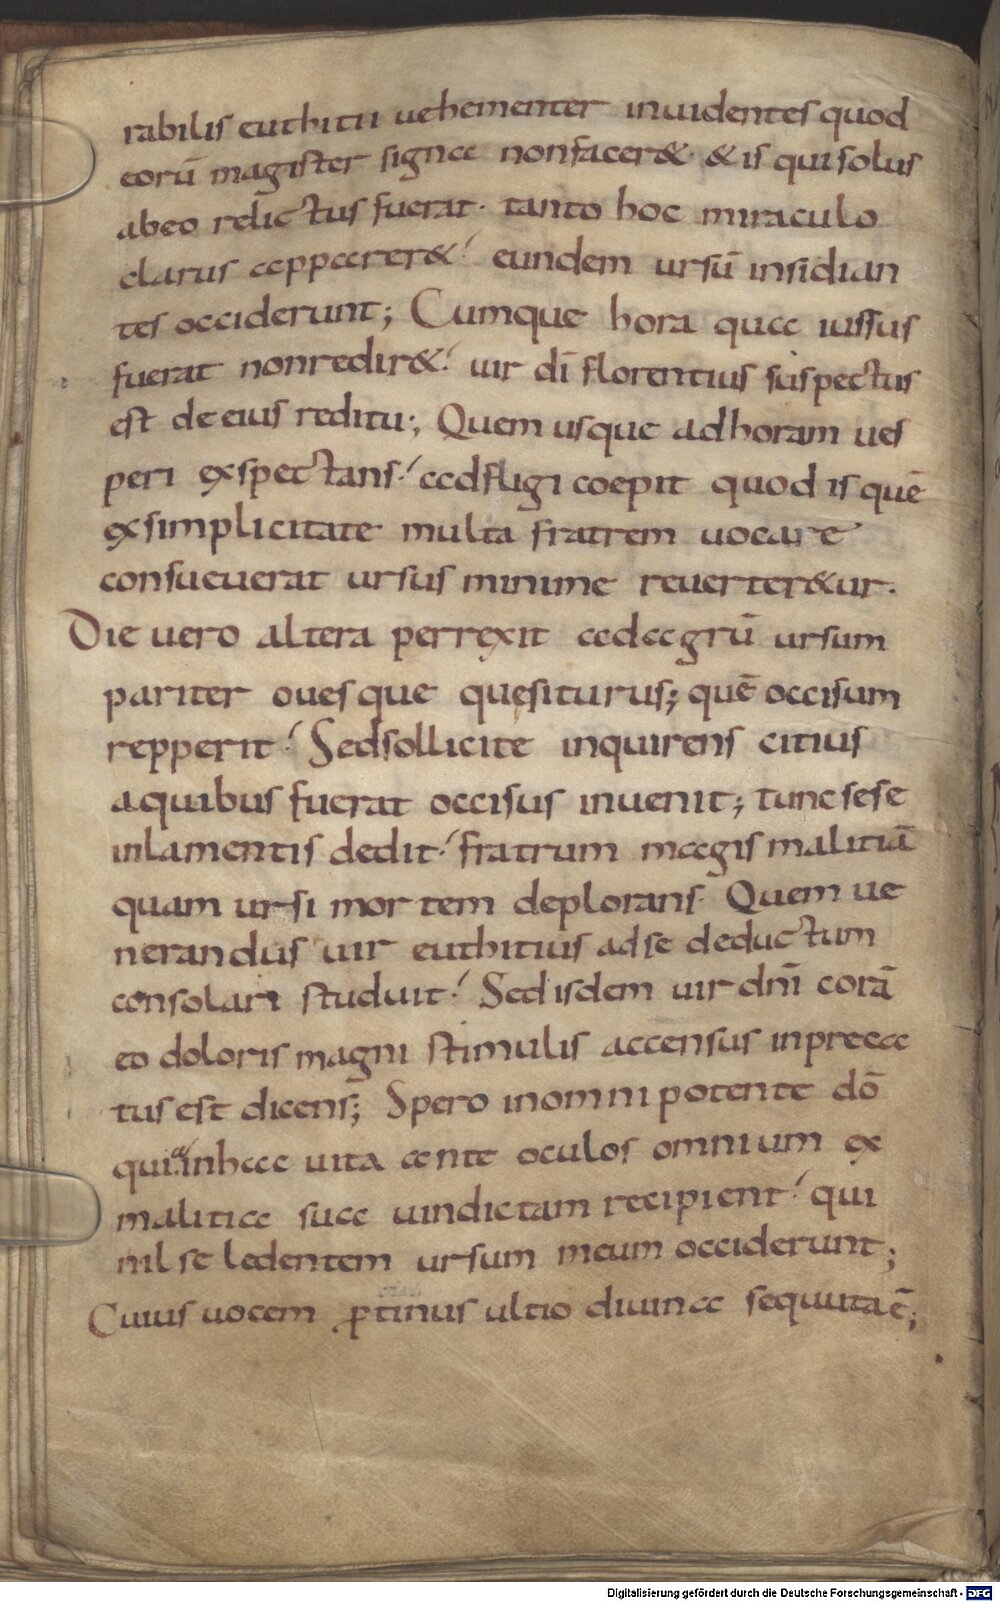 rabilis euthitii uehementer inuidentes quod
eorū magister signa non facer&. & is qui solus
ab eo relictus fuerat. tanto hoc miraculo
clarus apparer& eundem ursū insidian
tes occiderunt; Cumque hora qua iussus
fuerat non redir& uir dī florentius suspectus
est de eius reditu; Quem usque ad horam ues
peri exspectans adfligi coepit quod is quē
ex simplicitate multa fratrem uocare
consueuerat ursus minime reuerter&ur.
Die uero altera perrexit ad agrū ursum
pariter ouesque quęsiturus; quē occisum
repperit Sed sollicite inquirens citius
a quibus fuerat occisus inuenit; tunc sese
in lamentis dedit fratrum magis malitiā
quam ursi mortem deplorans. Quem ue
nerandus uir euthitius ad se deductum
consolari studuit Sed isdem uir dn̄i corā
eo doloris magni stimulis accensus inpreca
tus est dicens; Spero in omnipotente dō
quia in hac uita ante oculos omnium ex
malitia sua uindictam recipient qui
nil se ledentem ursum meum occiderunt;
Cuius uocem ꝓtinus ultio diuina sequuta ē;
Digitalisierung gefördert durch die Deutsche Forschungsgemeinschaft - DFG